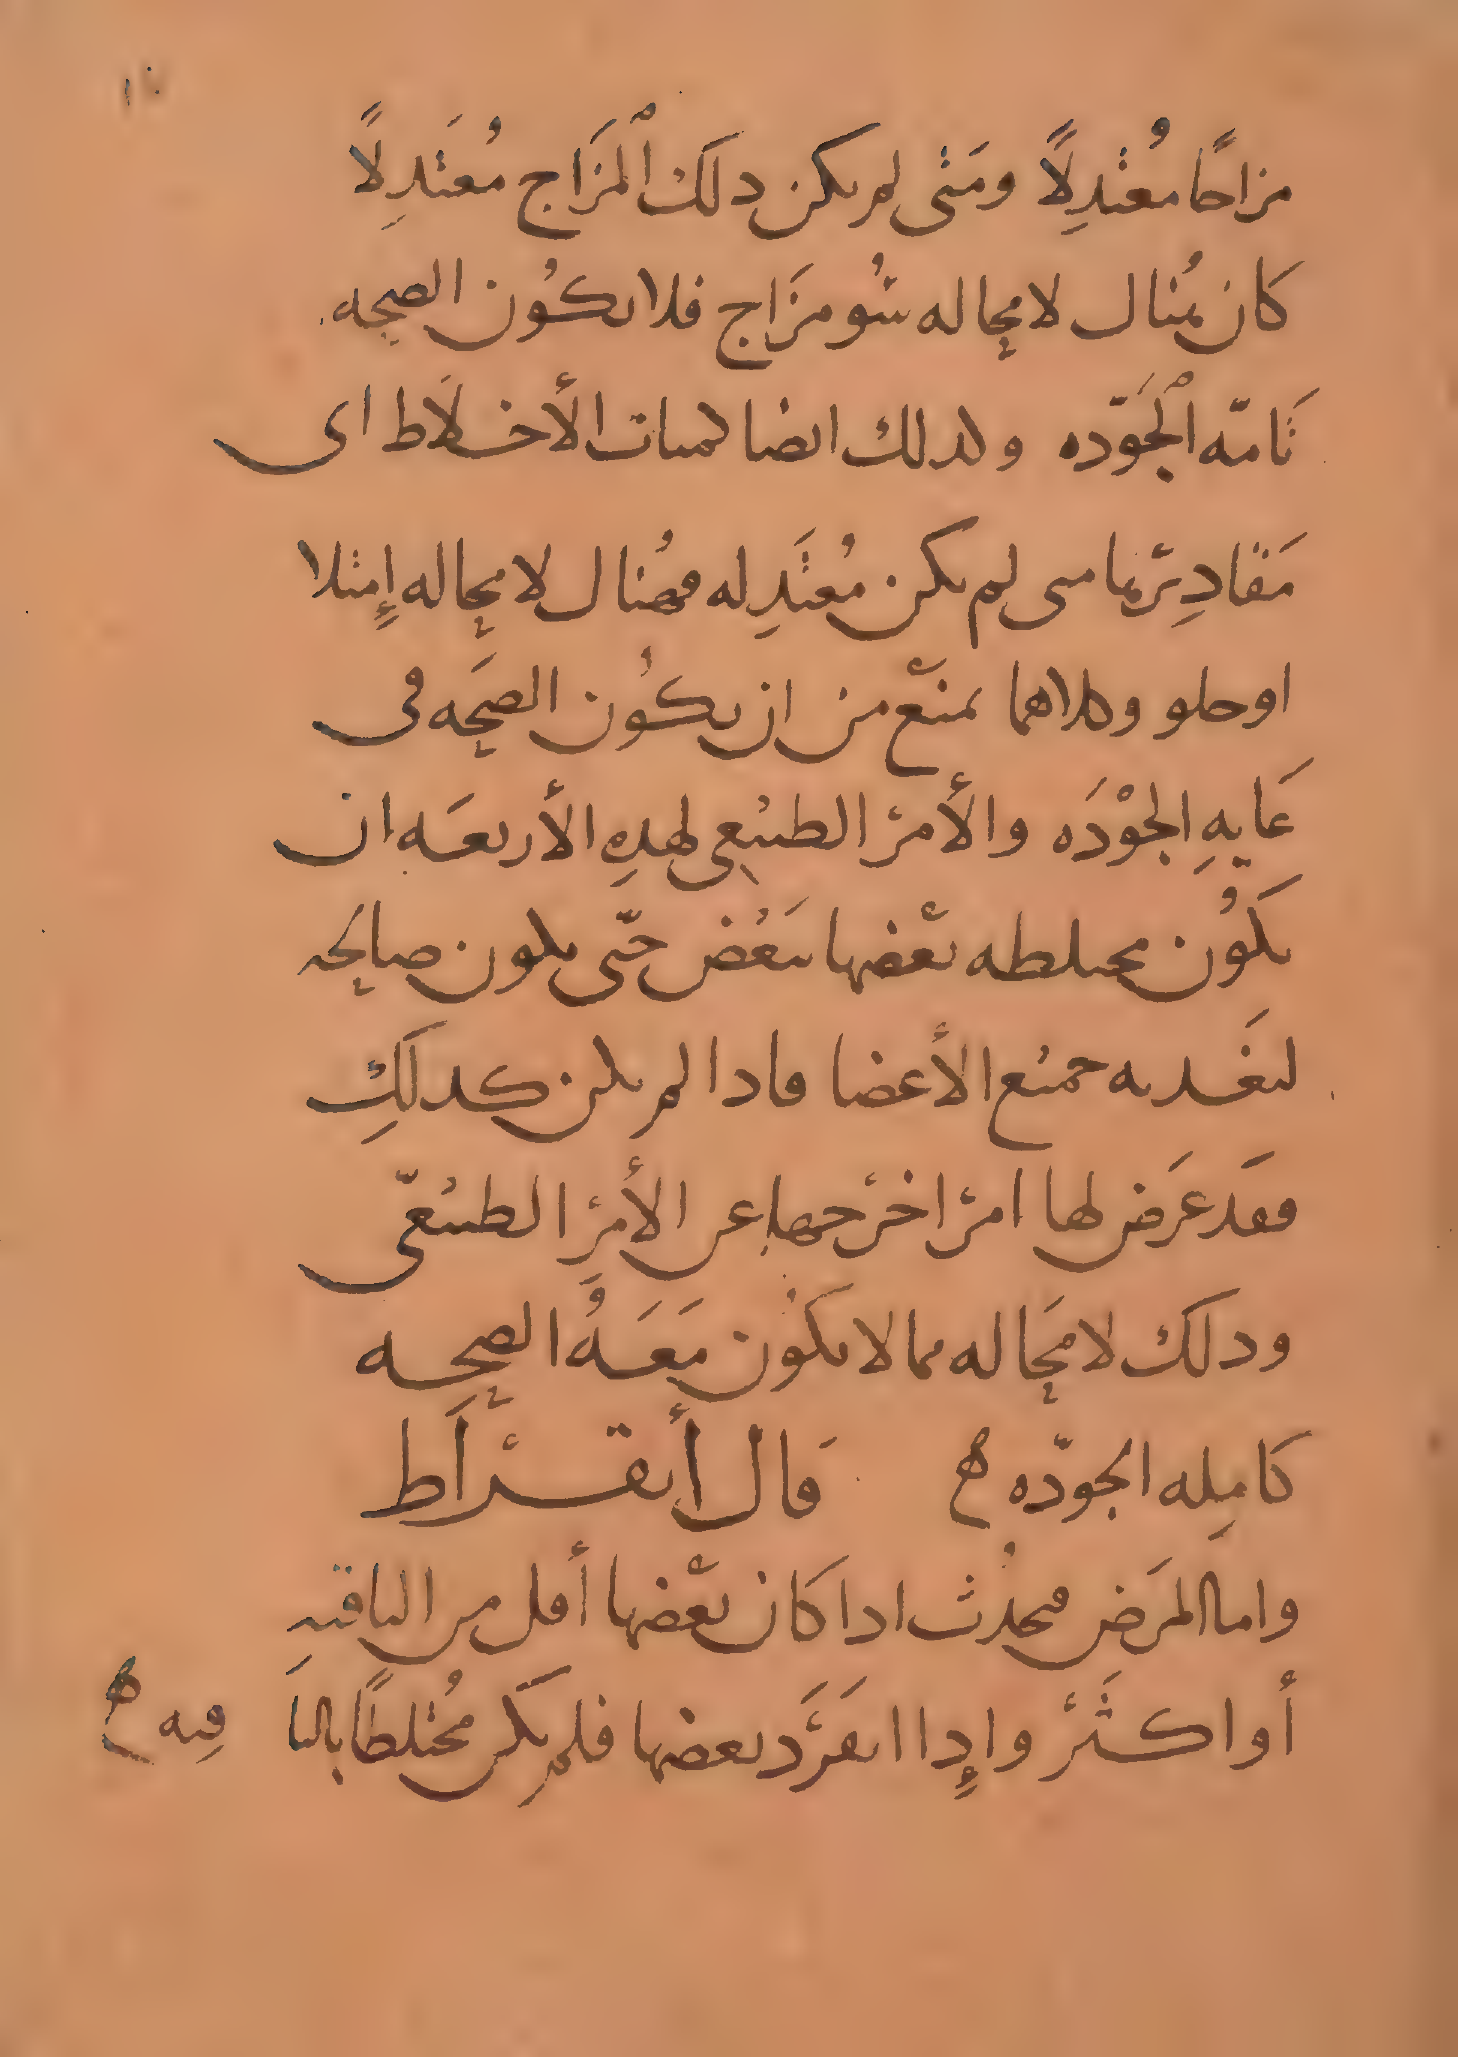 ١٠
مزاجًا مُعْتدِلًا ومَتى لم يكن ذلك ٱلمَزَاج مُعتَدِلًا
كان هُناك لا محاله سُو مزَاج فلا تكُون الصحه
تَامّه ٱلجَوّده وكذلك ايضا كميات الأخلَاط اى
مَقادِيرْها متى لم تكن مُعتَدِله فهُناك لا محاله إِمتلا
او خلو وكلاهما يمنعْ من ان تكُون الصحَه فى
غَايهِ الجوْدَه والأمرْ الطبيعى لهذِهِ الأربعَه ان
تكَوُن مختلطه بعْضها ببَعُض حتّى تكون صالحه
لتغَذيه جميع الأعضا فاذا لم تكن كذلَكِ
فقَد عَرَض لها امرْ اخرْجها عن الأمرِْ الطبيعّى
وذلَك لا محَاله مما لا تكَوُن مَعَهُ الصحه
كَامِله الجوّده ه
قَال أبقرْاَط
واما المرَض فيحدُث اذا كَان بعْضها أقل من الباقيهِ
أو اكثَرْ وإِذا انفَرَْد بعضها فلم يكَن مُختلطًا بالبا قيه ه